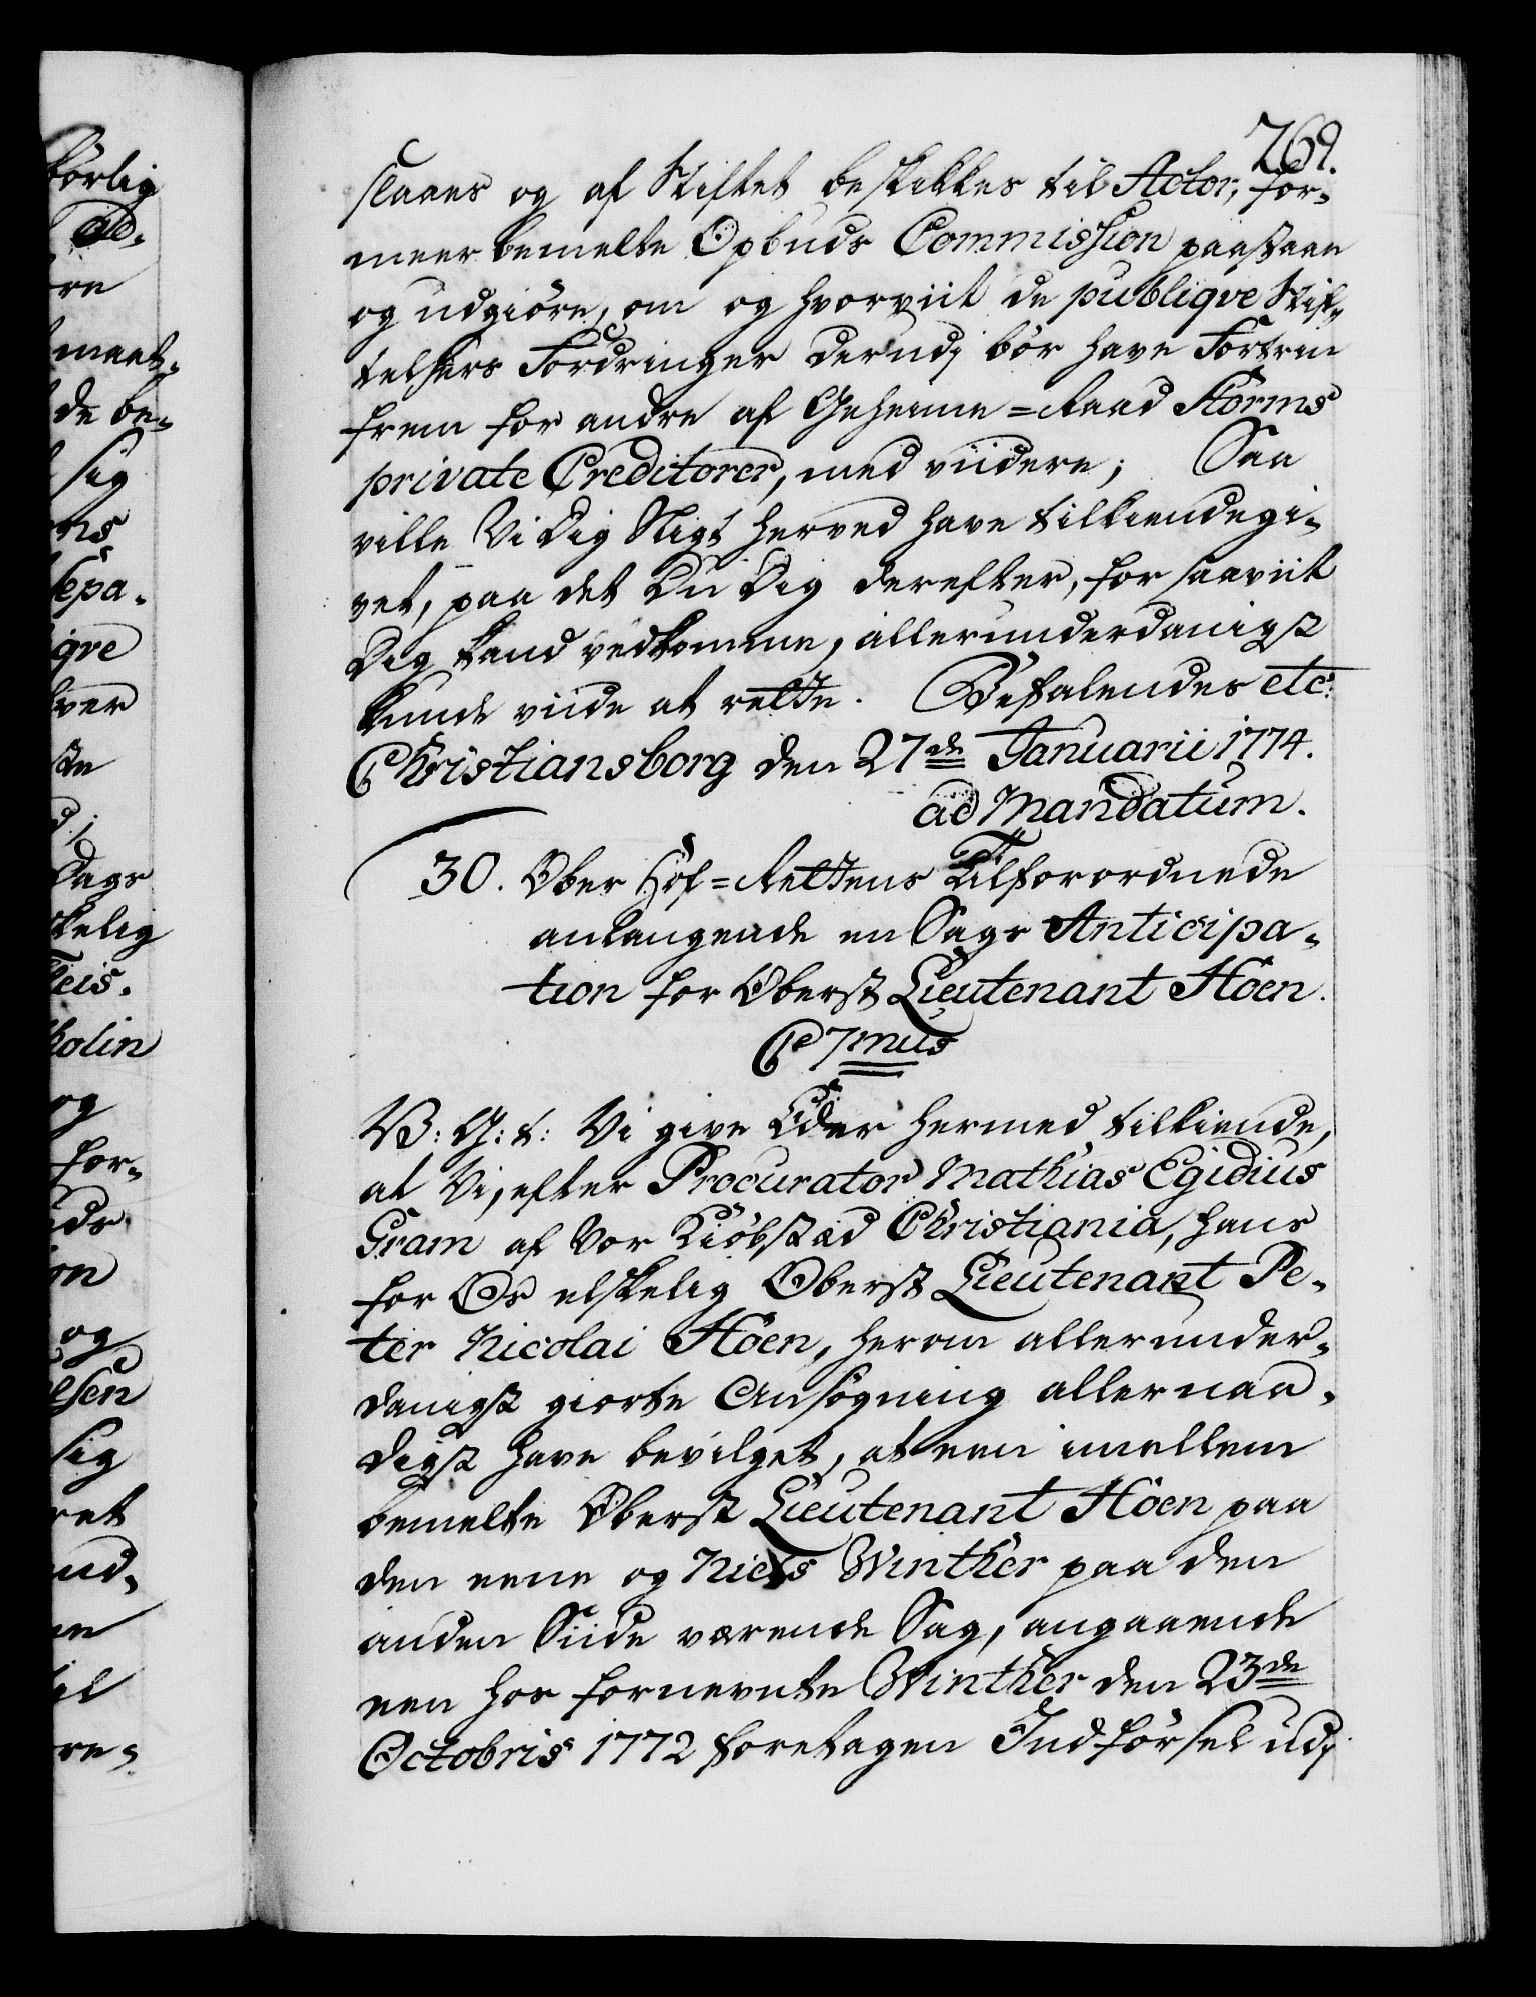 269.
slaaes og af Stiftet beskikkes til Actor, for-
meer bemelte Opbuds Commission paastaae
og udgiöre, om og hvorviit de publiqve Stif-
telsers Fordringer derudj bör have Fortrin
frem for andre af Geheime=Raad Störms
private Creditorer, med viidere; Saa
ville Vi Dig sligt herved have tilkiendegi-
vet, paa det Du Dig derefter, for saaviit
Dig kand vedkomme, allerunderdanigst
kunde viide at rette. Befalendes etc:
Christiansborg den 27de Januarii 1774.
ad Mandatum.
30. Ober Hof=Rettens Tilforordnede
anlangende en Sags Anticipa-
tion for Oberst Lieutenant Höen.
C 7mus
V: G: t: Vi give Eder hermed tilkiende,
at Vi, efter Procurator Mathias Egidius
Gram af Vor Kiöbstad Christiania, hans
for Os elskelig Oberst Lieutenant Pe-
ter Nicolai Höen, herom allerunder-
danigst giorte Ansögning allernaa-
digst have bevilget, at een imellem
bemelte Oberst Lieutenant Höen paa
den eene og Niels Winther paa den
anden Siide værende Sag, angaaende
een hos fornevnte Winther den 23de
Octobris 1772 foretagen Indförsel udj
börlig
ad-
re
maat-
de be-
sig
ns
sepa-
qve
hver
ste
Dags
skelig
Teis.
holin
og
for-
uds
on
og
elsen
sig
ret
und-
en
til
re-